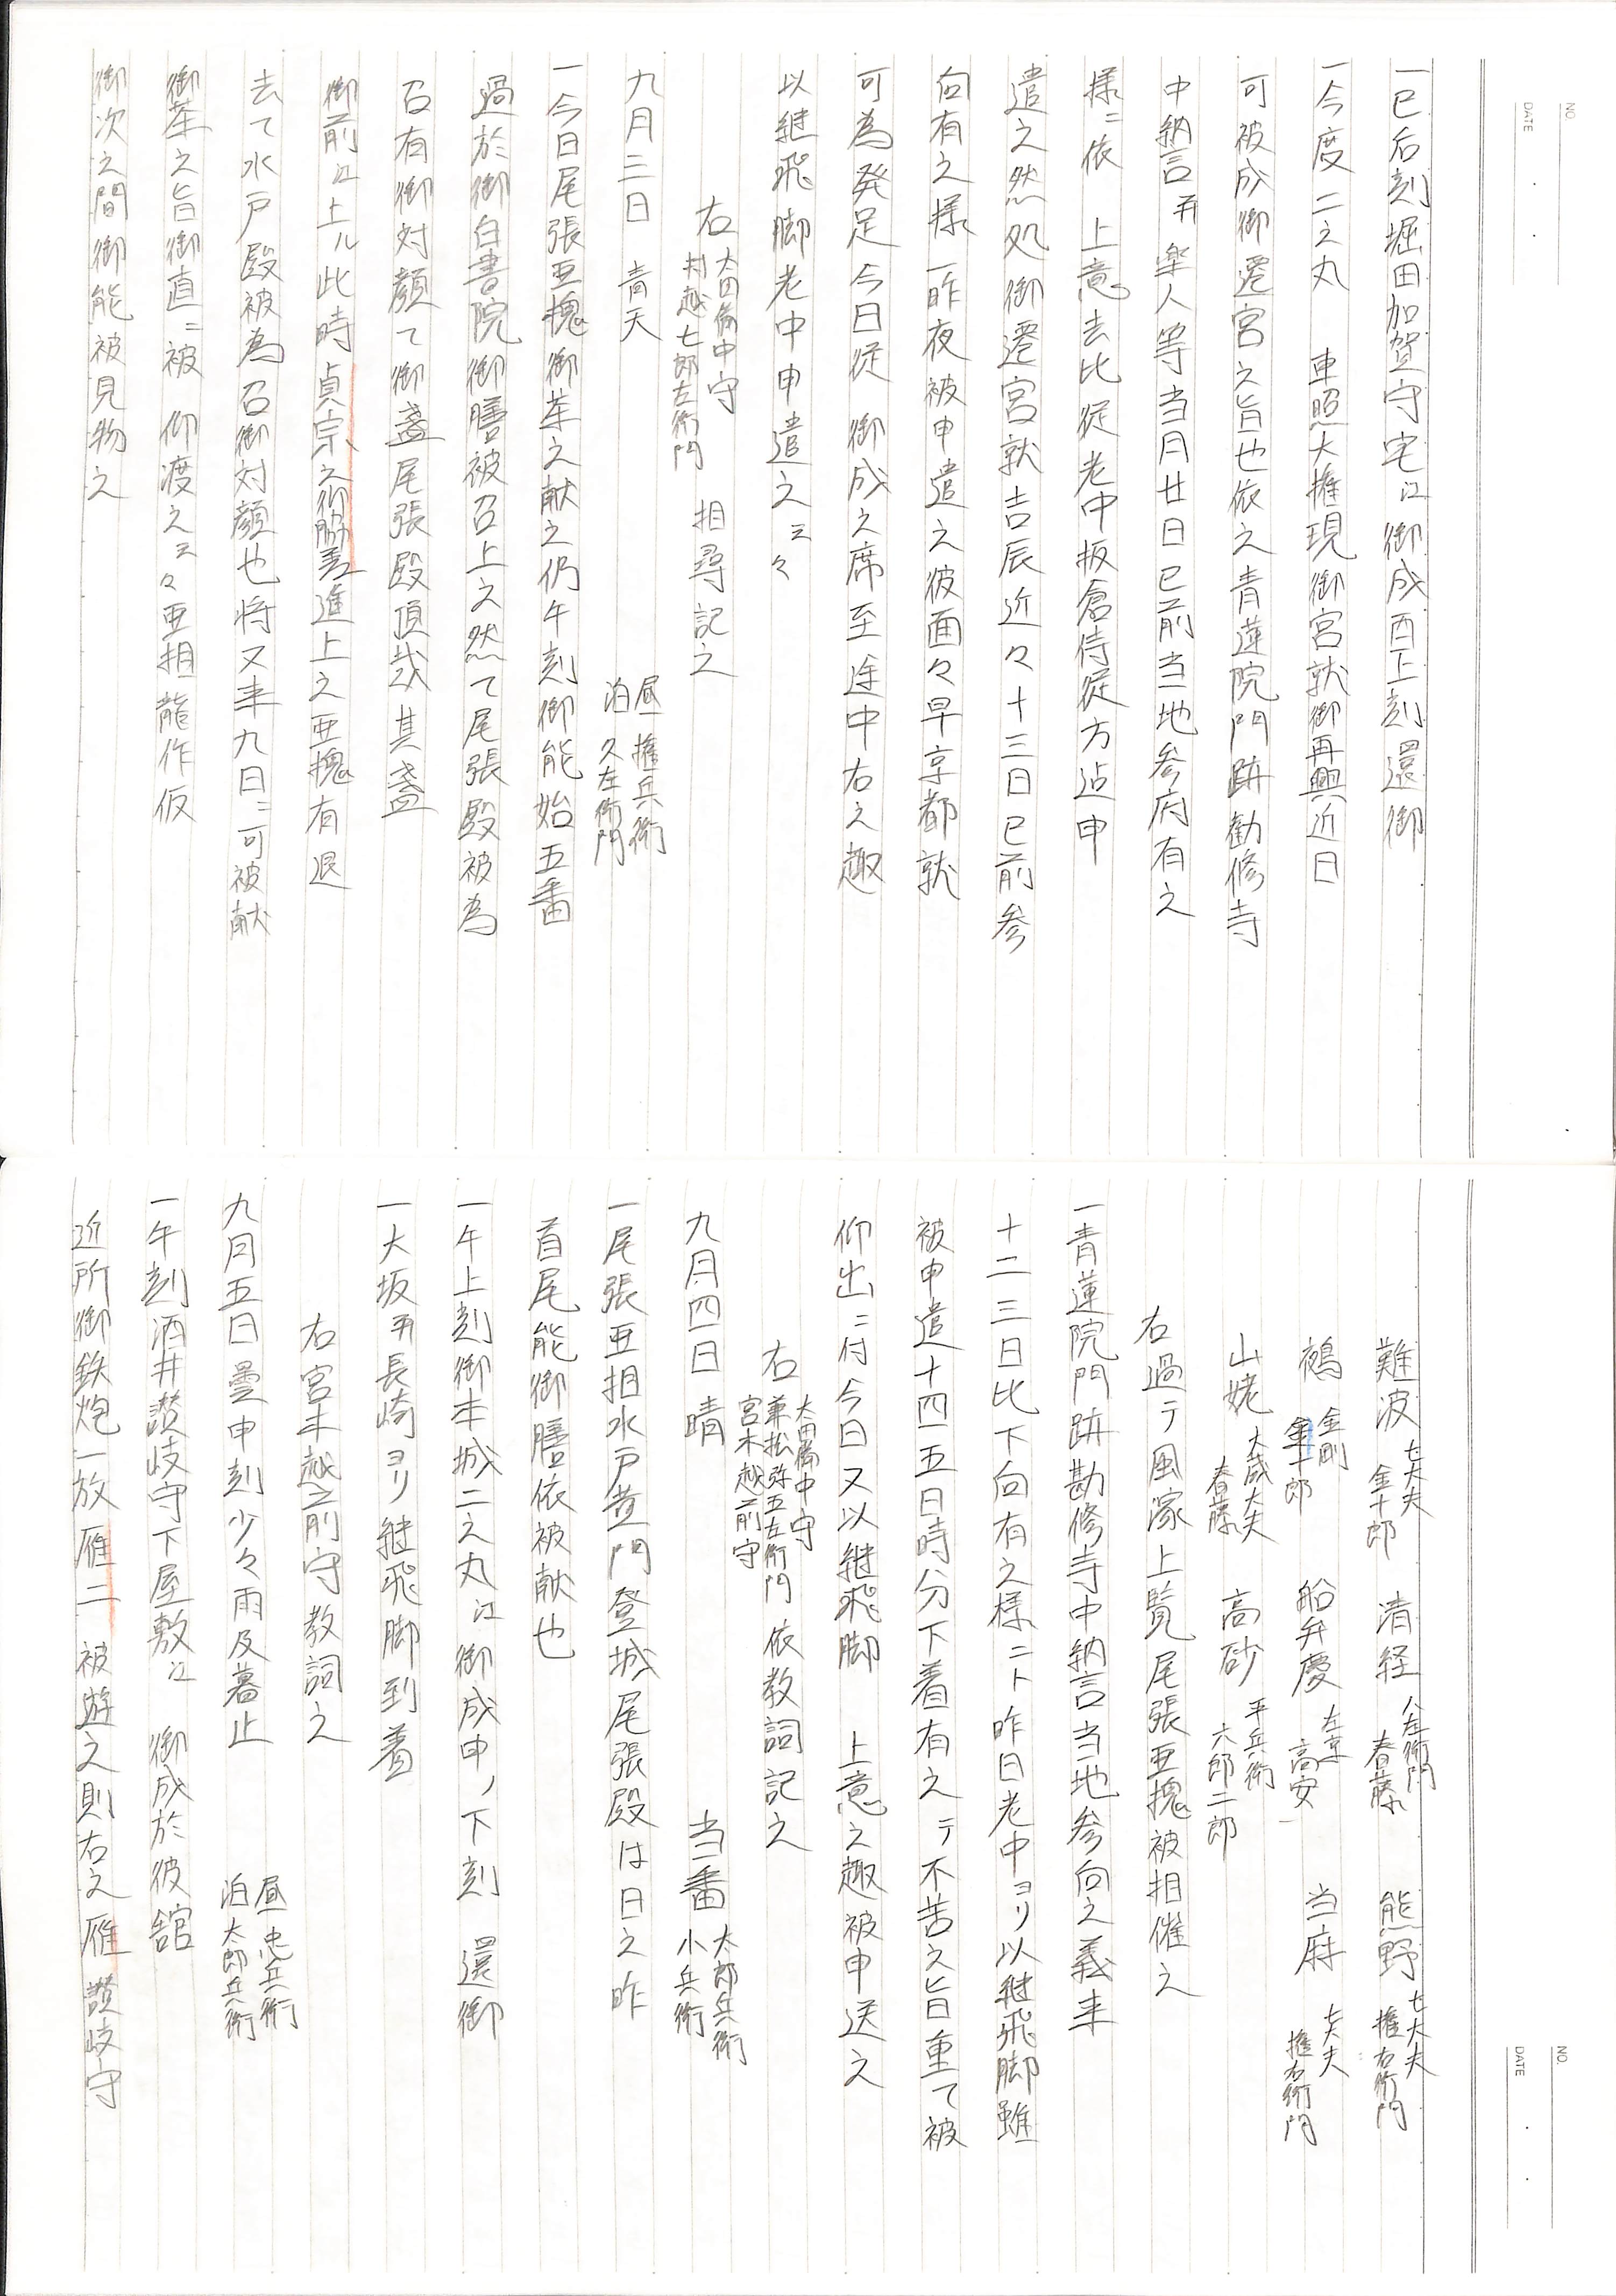 NO.
DATE
一已后刻堀田加賀守宅江御成酉上刻還御
一今度二之丸 東照大権現御宮就御再興近日
可被成御遷宮之旨也依之青蓮院門跡勧修寺
中納言并楽人等当月廿日已前当地参府有之
様ニ依 上意去比従老中板倉侍従方迠申
遣之然処御遷宮就吉辰近々十三日已前参
向有之様一昨夜被申遣之彼面々早京都就
可為発足今日従 御成之席至途中右之趣
以継飛脚老中申遣之云々
右 太田備中守 村越七郎左衛門 相尋記之
九月三日 青天 昼 権兵衛 泊 久左衛門
一今日尾張亜槐御茶之献之仍午刻御能始五番
過於御白書院御膳被召上之然て尾張殿被為
召有御対顔て御盞尾張殿頂戴其盞
御前江上ル此時貞宗之御脇差進上之亜槐有退
去て水戸殿被為召御対顔也将又来九日ニ可被献
御茶之旨御直ニ被 仰渡之云々亜相龍作仮
御次之間御能被見物之
NO.
DATE
難波 七大夫 金十郎 清経 八左衛門 春藤 熊野 七大夫 権右衛門
鵺 金剛 金十郎 船弁慶 左京 高安 当麻 七大夫 権右衛門
山姥 大蔵大夫 春藤 高砂 平兵衛 六郎二郎
右過テ風流上覧尾張亜槐被相催之
一青蓮院門跡勘修寺中納言当地参向之義来
十二三日比下向有之様ニト昨日老中ヨリ以継飛脚雖
被申遣十四五日時分下着有之テ不苦之旨重て被
仰出ニ付今日又以継飛脚 上意之趣被申送之
右 太田備中守 兼松弥五左衛門 宮木越前守 依教詞記之
九月四日 晴 当番 太郎兵衛 小兵衛
一尾張亜相水戸黄門登城尾張殿は日之昨
首尾能御膳依被献也
一午上刻御本城二之丸江御成申ノ下刻 還御
一大坂并長崎ヨリ継飛脚到着
右宮木越前守教詞之
九月五日曇申刻少々雨及暮止 昼 忠兵衛 泊 太郎兵衛
一午刻酒井讃岐守下屋敷江 御成於彼舘
近所御鉄炮一放雁二被遊之則右之雁讃岐守